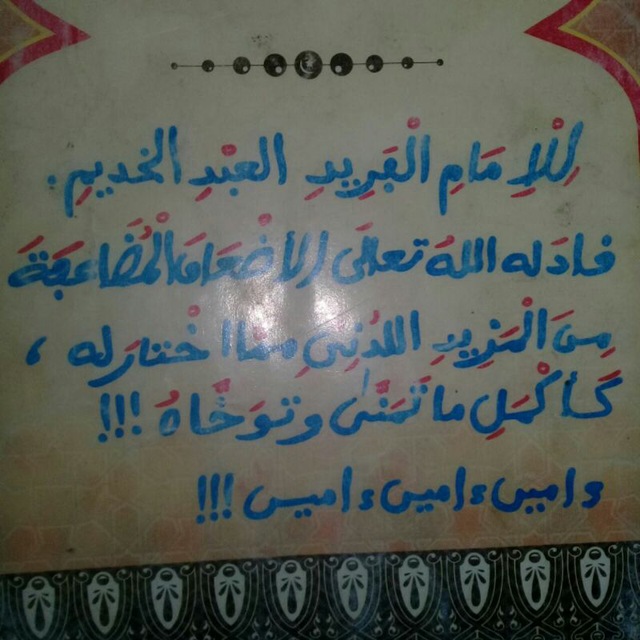 لِلْإِمَامِ الْفَرِيدِ العَبْدِ الخديمِ.
فادَله اللهُ تعالَى الاضْعَافَ الْمُضَاعَفَةَ
مِنَ الْمَزِيدِ اللدُنِيِ مِمَّا اخْتارَله ،
كَأكْمَلِ مَا تَمَنَّىٰ وتوَخَّاهُ !!!
ءامين ءامين ءامين !!!